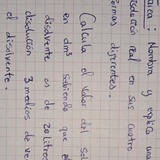 Nombra y explica una
real en sus cuatro
formas diferentes.
Calcula el valor del
en dm³ sabiendo que
disolvente es de 20 litros
disolución 3 de
el disolvente.